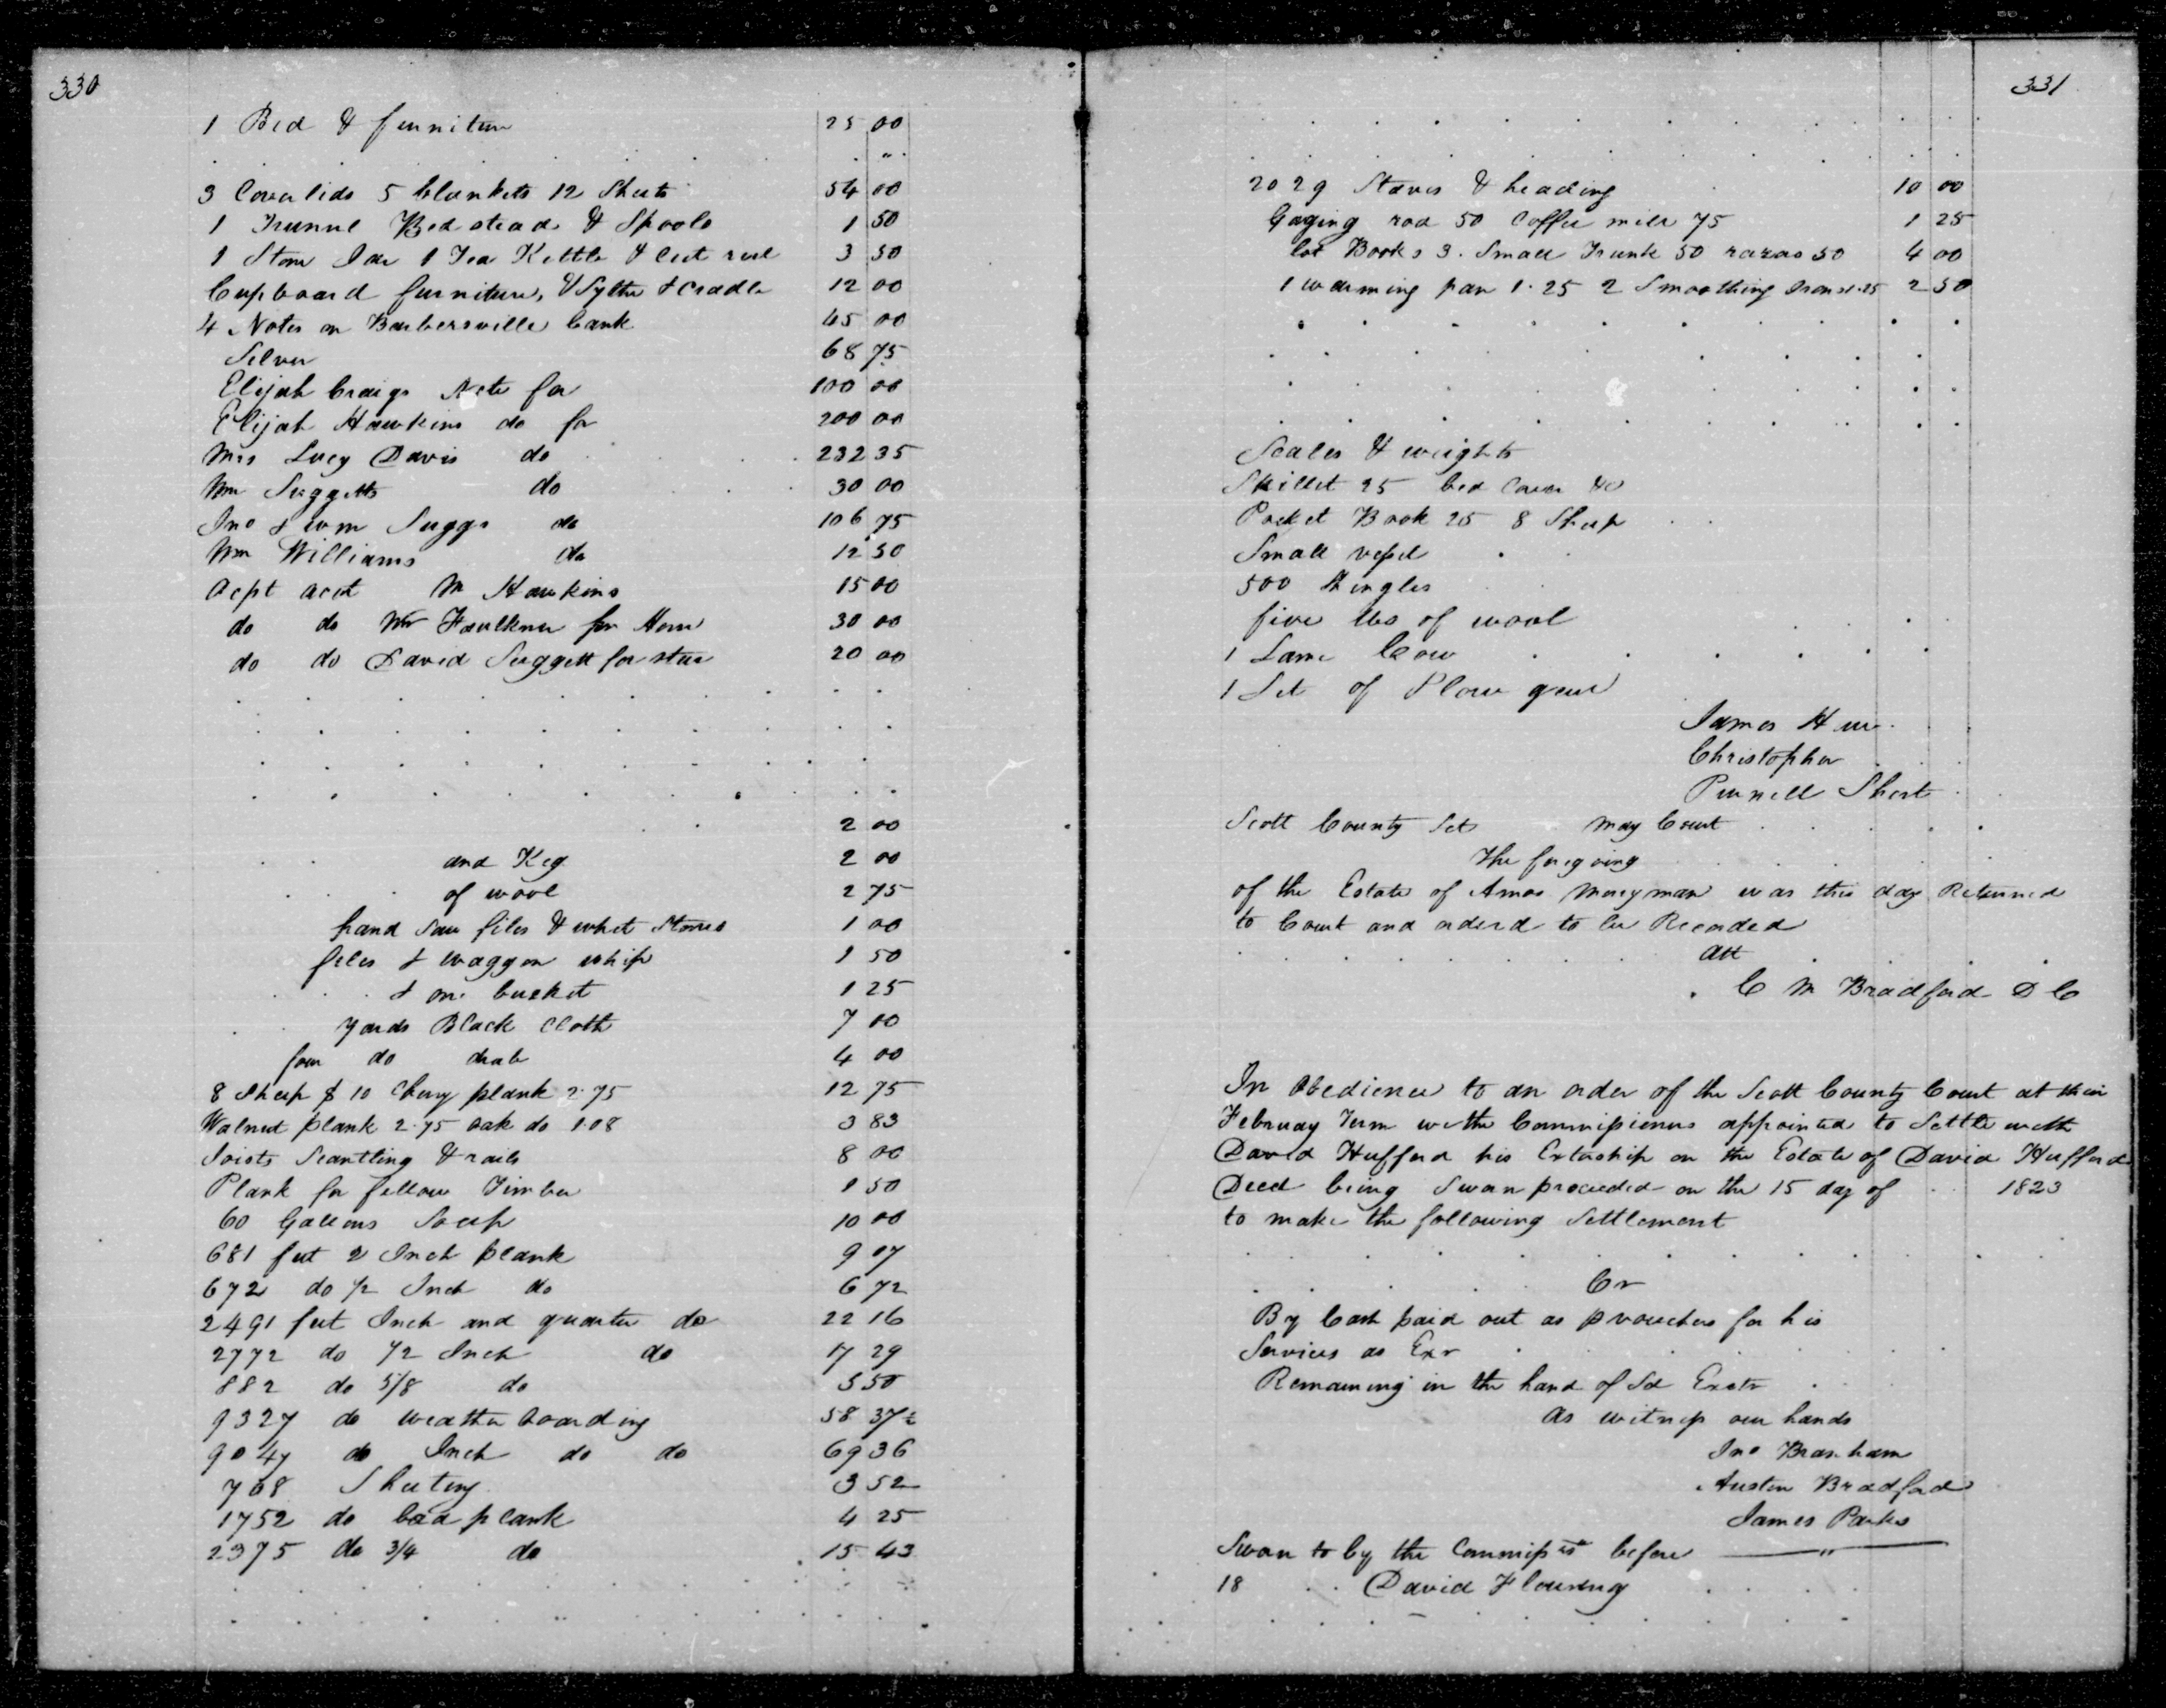 330
1 Bed & furniture 25 00
3 Coverlids 5 blankets 12 Sheets 54 00
1 Trunnl Bedstead & Spools 1 50
1 Stone Jar 1 Tea Kettle & cut reel 3 50
Cupboard furniture, & Sythe & Cradle 12 00
4 Notes on Barbersville bank 45 00
Silver 68 75
Elijah Craigs Note for 100 00
Elijah Hawkins do for 200 00
Mrs Lucy Davis do 232 35
Wm Suggetts do 30 00
Jno & wm Suggs do 106 75
Wm Williams do 12 50
acpt acct M Hawkins 15 00
do do Wm Faulkner for Horse 30 00
do do David Suggett for steer 20 00
2 00
and Keg 2 00
of wool 2 75
hand saw files & whet Stones 1 00
files & waggon whip 1 50
& one bucket 1 25
yards Black Cloth 7 00
four do drab 4 00
8 Sheep $ 10 Cherry plank 2.75 12 75
Walnut plank 2.75 oak do 1.08 3 83
Joists Scantling & rails 8 00
Plank for fellow Timber 1 50
60 Gallons Soap 10 00
681 feet 2 Inch plank 9 07
672 do 1/2 Inch do 6 72
2491 feet Inch and quarter do 22 16
2772 do 1/2 Inch do 17 29
882 do 5/8 do 5 50
9327 do weather boarding 58 37½
9047 do Inch do do 69 36
708 Sheeting 3 52
1752 do bad plank 4 25
2375 do 3/4 do 15 43
331
2029 Staves & heading 10 00
Gaging rod 50 Coffee mill 75 1 25
lot Books 3. Small Trunk 50 razors 50 4 00
1 warming pan 1.25 2 Smoothing Irons 1.25 2 50
Scales & weights
Skillet 25 bed Cover &c
Pocket Book 25 8 Sheep
Small vessel
500 Shingles
five lbs of wool
1 Lame Cow
1 Set of Plow gear
James H
Christopher
Purnell Short
Scott County Sct May Court
The foregoing
of the Estate of Amos Moneyman was this day Returned
to Court and ordered to be Recorded
Att
C M Bradford D C
In Obedience to an order of the Scott County Court at their
February Term we the Commissioners appointed to Settle with
David Hufford his Extership on the Estate of David Hufford
Decd being Sworn proceeded on the 15 day of 1823
to make the following Settlement
Cr
By Cash paid out as p vouchers for his
Services as Exr
Remaining in the hand of Sd Exctr
as witness our hands
Jno Branham
Austin Bradford
James Parks
Sworn to by the Commissrs before
18 David Flournoy